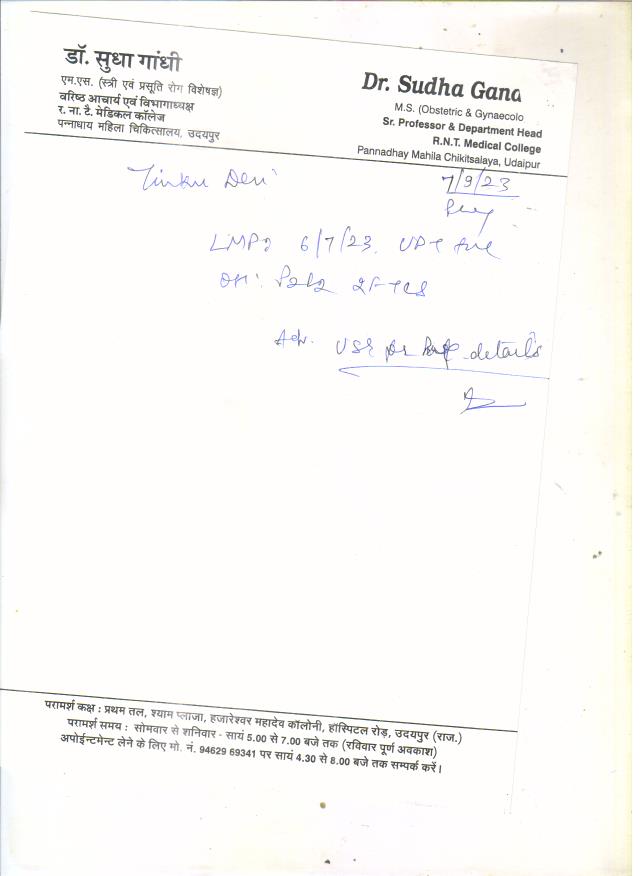 डॉ. सुधा गांधी
एम.एस. (स्त्री एवं प्रसूति रोग विशेषज्ञ)
वरिष्ठ आचार्य एवं विभागाध्यक्ष
र. ना. टै. मेडिकल कॉलेज
पन्नाधाय महिला चिकित्सालय, उदयपुर
Dr. Sudha Gand
M.S. (Obstetric & Gynaecolo
Sr. Professor & Department Head
R.N.T. Medical College
Pannadhay Mahila Chikitsalaya, Udaipur
Tinku Devi
7/9/23
LMP 6/7/23. UPT +ve
OH: P2L2 2FTLS
Adv. details
परामर्श कक्ष : प्रथम तल, श्याम प्लाजा, हजारेश्वर महादेव कॉलोनी, हॉस्पिटल रोड़, उदयपुर (राज.)
परामर्श समय : सोमवार से शनिवार - सायं 5.00 से 7.00 बजे तक (रविवार पूर्ण अवकाश)
अपोईन्टमेन्ट लेने के लिए मो. नं. 94629 69341 पर सायं 4.30 से 8.00 बजे तक सम्पर्क करें।